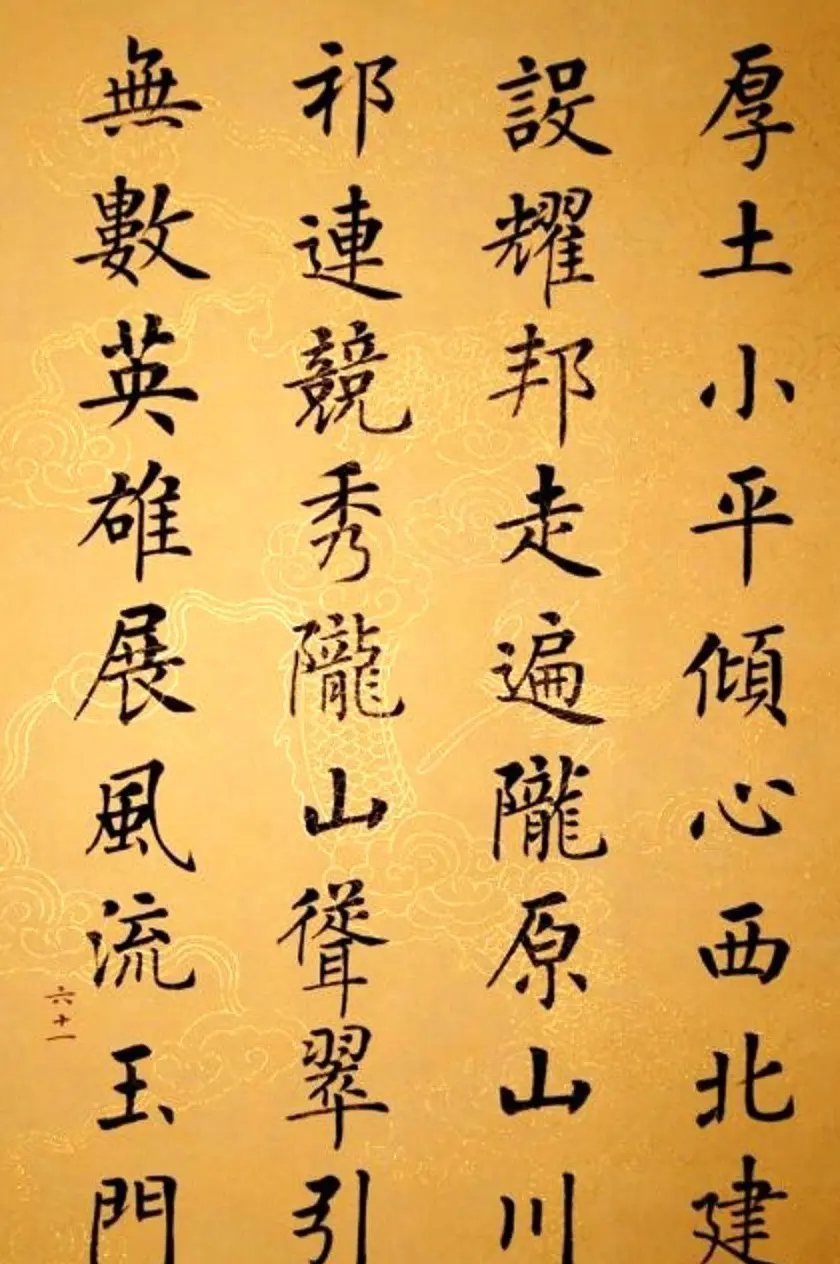 厚土小平傾心西北建
設耀邦走遍隴原山川
祁連競秀隴山聳翠引
無數英雄展風流玉門
六十一